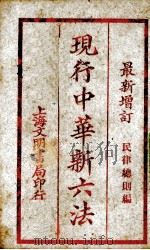 最新增訂
民律總則編
現行中華新六法
上海文明書局印行